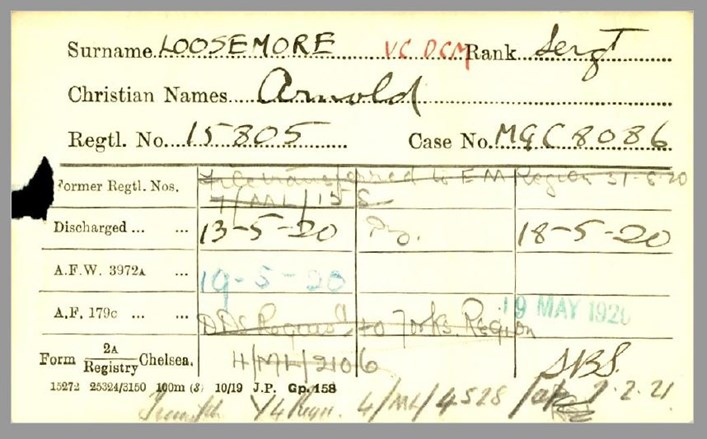 Surname LOOSEMORE VC DCM Rank Sergt
Christian Names Arnold
Regtl. No. 15805 Case No. MGC 8086
Former Regtl. Nos. File transferred to E M Region 31-8-20
4/ML/15
Discharged ... ... 13-5-20 18-5-20
A.F.W. 3972A ... 19-5-20
A.F. 179c ... ... to Yorks. Region 19 MAY 1920
Form 2A/Registry Chelsea. 4/ML/2106 SBS.
15272 25324/3150 100m (3) 10/19 J.P. Gp. 158
4/ML/4528 2.2.21